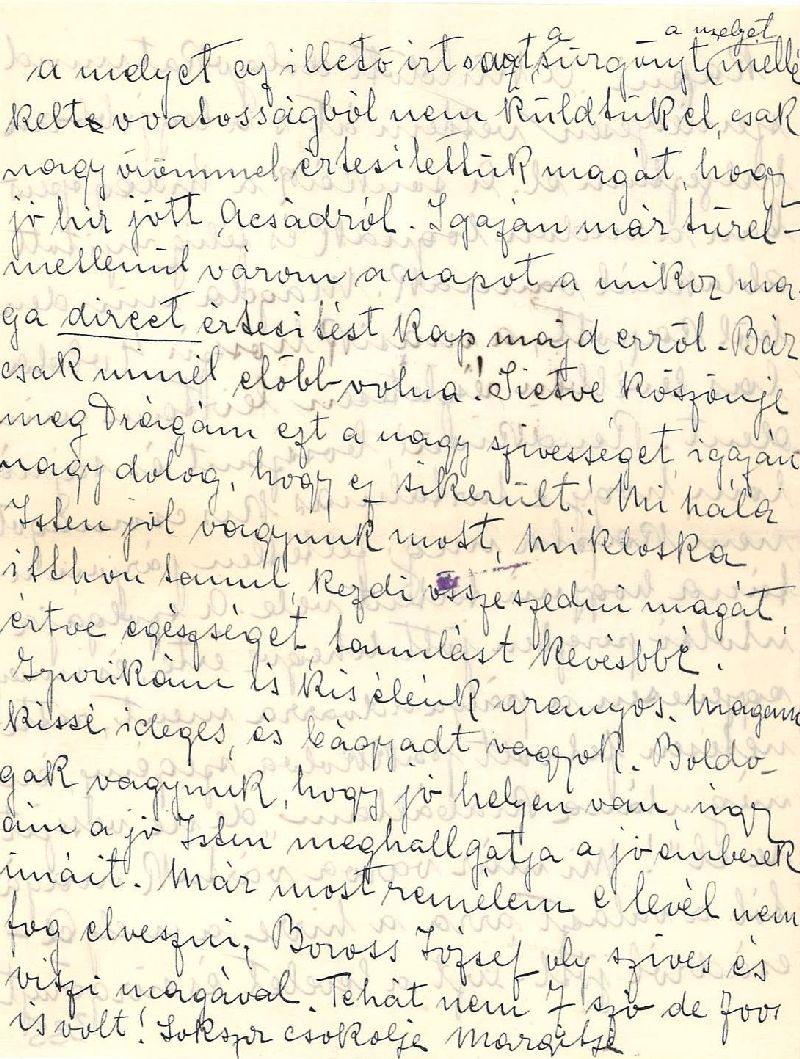 a a melyet
a melyet az illető irt azt sürgönyt (mellé
kelte ovatosságból nem küldtük el, csak
nagy örömmel értesitettük magát, hogy
jó hir jött Acsádról. Igazán már türel-
metlenül várom a napot a mikor ma-
ga direct értesitést kap majd erről. Bár
csak minél előbb volna! Sietve köszönje
meg Drágám ezt a nagy szivességet, igazán
nagy dolog, hogy ez sikerült! Mi hála
Isten jól vagyunk most, Mikloska
itthon tanul, kezdi összeszedni magát,
értve egészséget, tanulást kevésbbé.
Gyurikám is kis élénk aranyos. Magam
kissé ideges, és bágyadt vagyok. Boldo-
gak vagyunk, hogy jó helyen van, úgy
ám a jó Isten meghallgatja a jó emberek
imáit. Már most remélem e levél nem
fog elveszni, Boross József oly szives és
viszi magával. Tehát nem 7 szó de 700
is volt! Sokszor csokolja Margitja